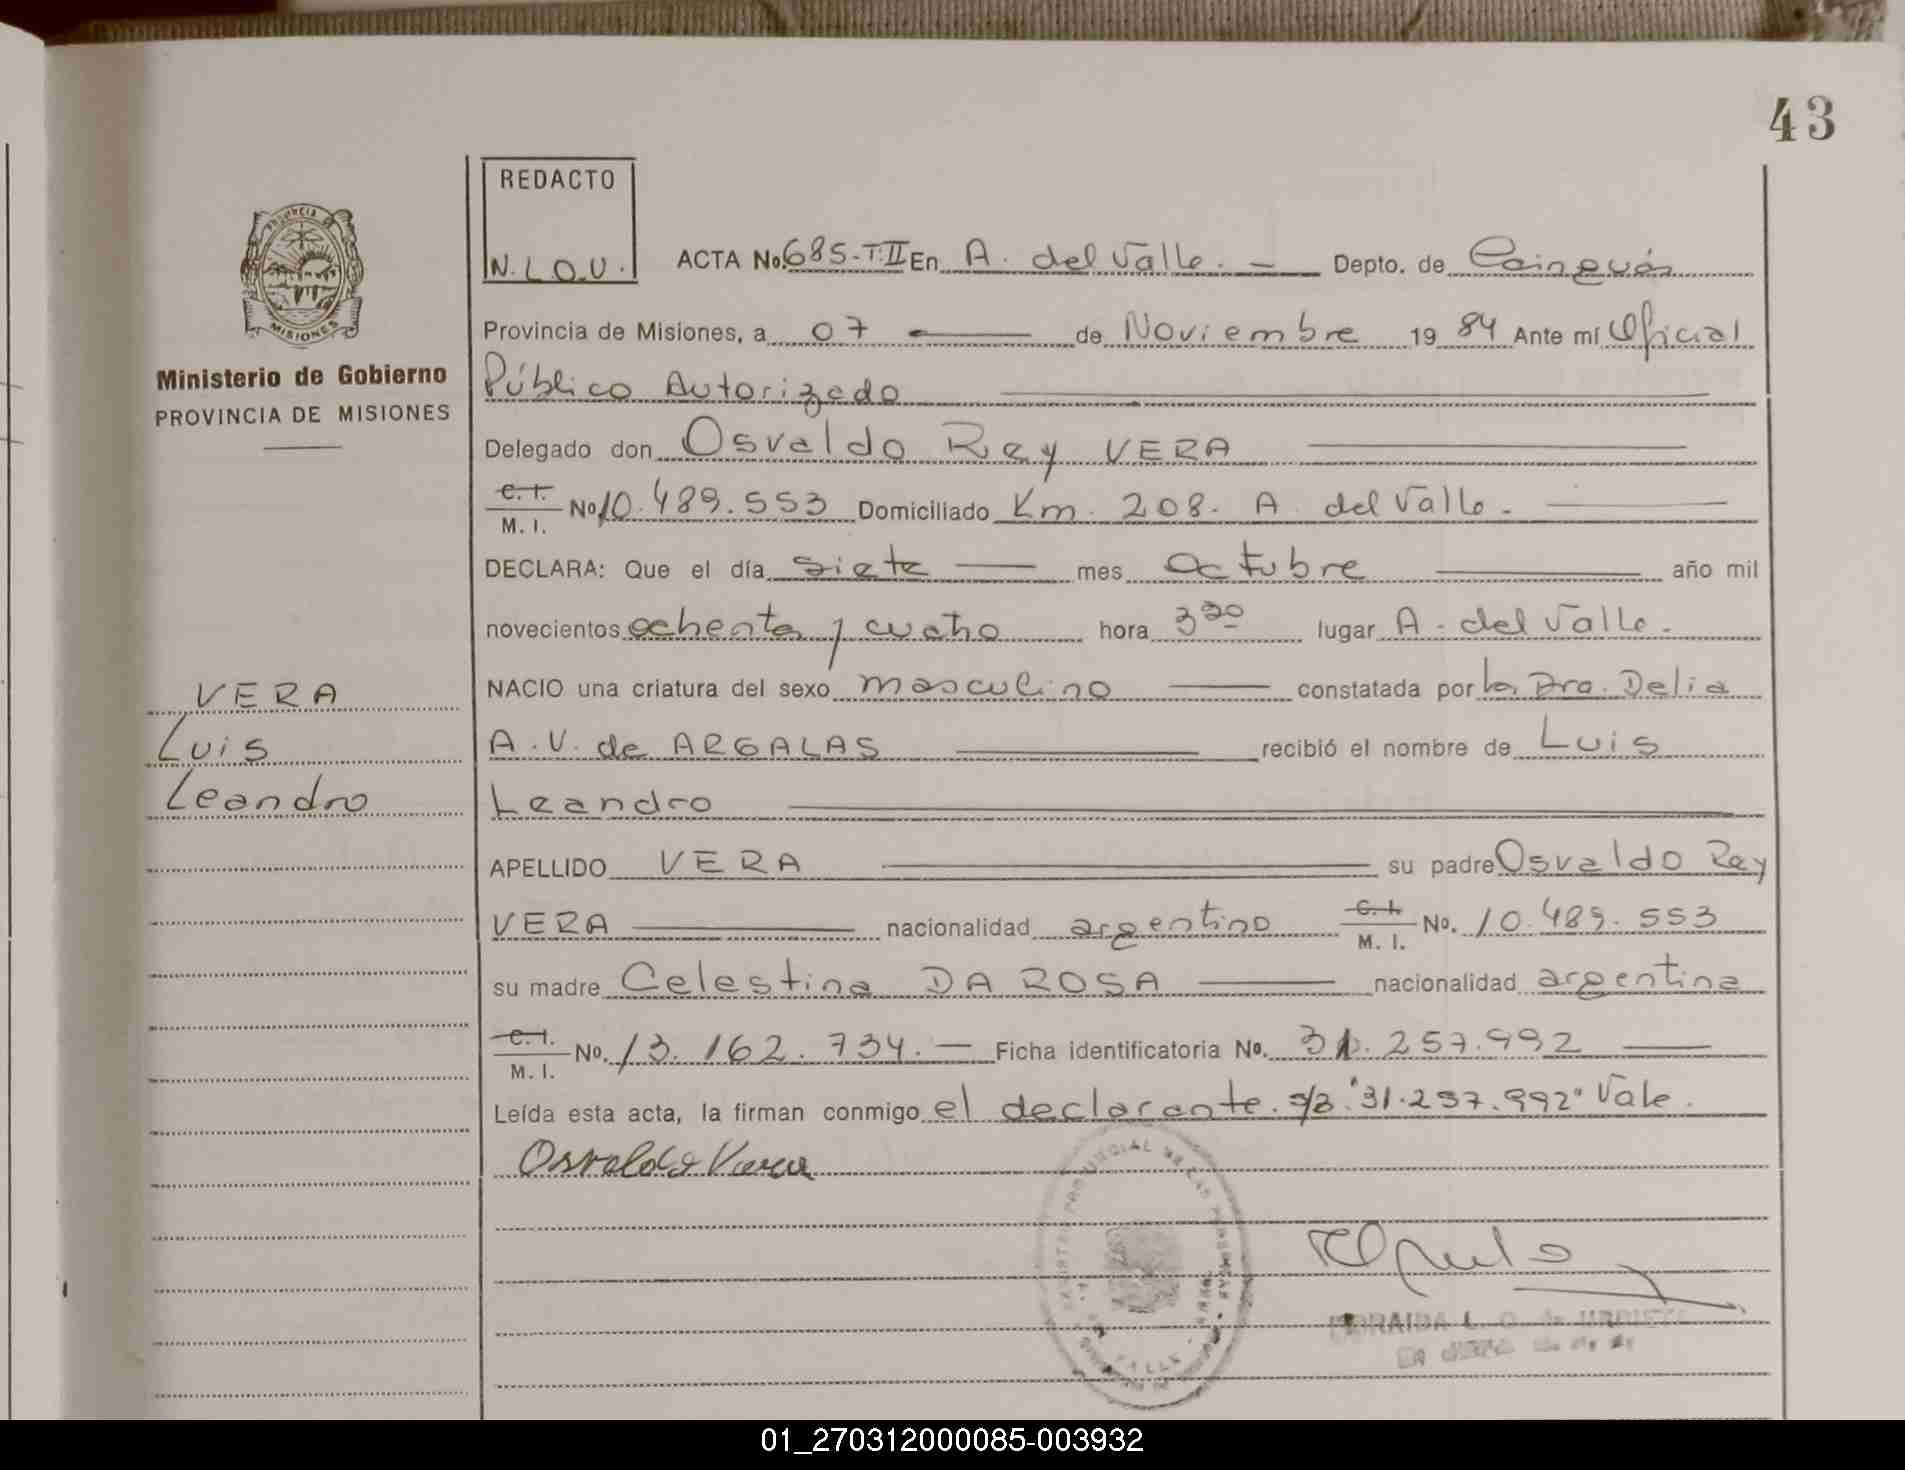 43
REDACTO
N.L.O.U.
PROVINCIA DE
MISIONES
Ministerio de Gobierno
PROVINCIA DE MISIONES
ACTA No. 685-T:II En A. del Valle. — Depto. de Cainguás
Provincia de Misiones, a 07 — de Noviembre 19 84 Ante mí Oficial
Público Autorizado
Delegado don Osvaldo Rey VERA
C. I.
M. I. No 10.489.553 Domiciliado Km. 208. A. del Valle.
DECLARA: Que el día siete — mes Octubre — año mil
novecientos ochenta y cuatro hora 3 30 lugar A. del Valle.
NACIO una criatura del sexo masculino — constatada por la Dra. Delia
A.V. de ARGALAS — recibió el nombre de Luis
Leandro
APELLIDO VERA — su padre Osvaldo Rey
VERA — nacionalidad argentino C. I.
M. I. No. 10.489.553
su madre Celestina DA ROSA — nacionalidad argentina
C. I.
M. I. No. 13.162.734. — Ficha identificatoria No. 31.257.992 —
Leída esta acta, la firman conmigo el declarante. s/b "31.257.992" Vale.
Osvaldo Vera
VERA
Luis
Leandro
VALLE
01_270312000085-003932